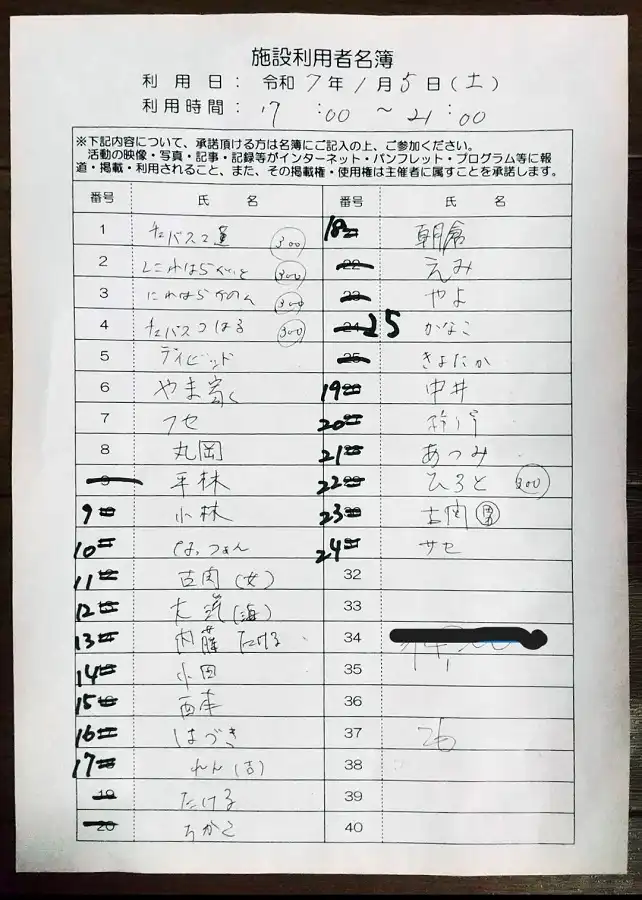 施設利用者名簿
利用日： 令和 7年 1月 5日（土）
利用時間： 17 :00 ～ 21:00
※下記内容について、承諾頂ける方は名簿にご記入の上、ご参加ください。
活動の映像・写真・記事・記録等がインターネット・パンフレット・プログラム等に報
道・掲載・利用されること、また、その掲載権・使用権は主催者に属すことを承諾します。
番号 氏 名 番号 氏 名
1 300 18 朝倉
2 300 22 えみ
3 300 23 やよ
4 300 24 25 かなこ
5 デイビッド 25 きよたか
6 やま 19 中井
7 フセ 20
8 丸岡 21 あつみ
9 平林 22 ひろと 300
9 小林 23 古肉 男
10 24 サセ
11 古肉（女） 32
12 33
13 内藤 たける 34
14 小田 35
15 36
16 はづき 37
17 れん（吉） 38
19 たける 39
20 ちかこ 40